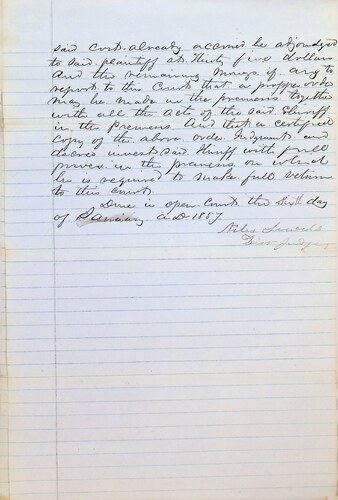 said cost already accrued be adjondged
to said plaintiff at Thirty five dollars
And the remaining moneys if any to
report to this Court that a propper order
may be made in the premises together
with all the acts of the said Sheriff
in the Premises And that a certified
copy of the above order Judgment and
decree invest said Sheriff with full
power in the premises on which
he is required to make full return
to this court
Done in open Court this Sixth day
of January A D 1857
Dist Judge